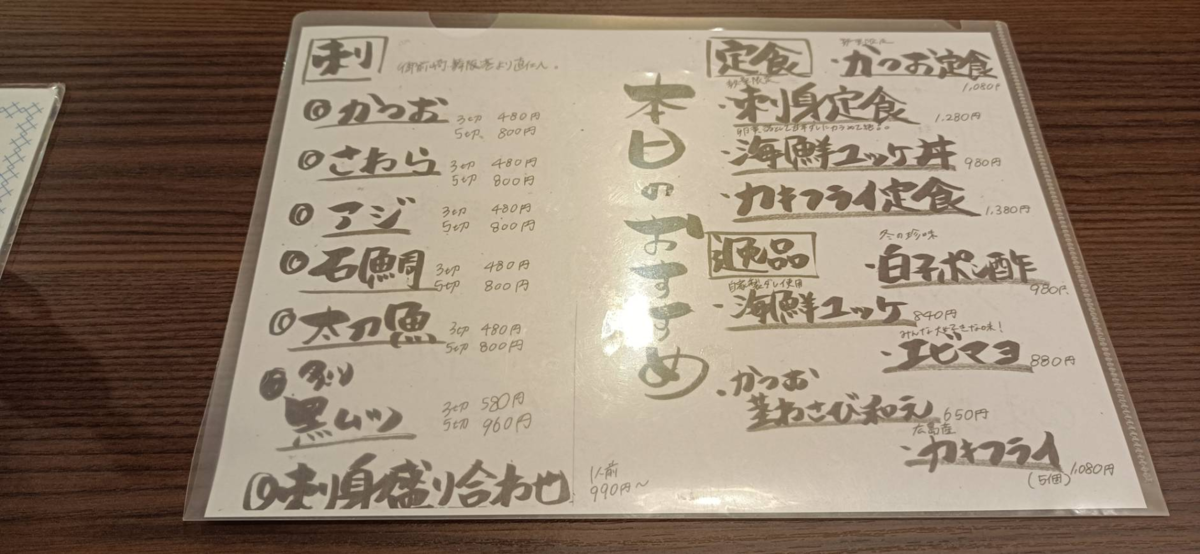 刺
◎かつお 3切 480円
5切 800円
◎さわら 3切 480円
5切 800円
◎アジ 3切 480円
5切 800円
◎石鯛 3切 480円
5切 800円
◎太刀魚 3切 480円
5切 800円
◎炙り
黒ムツ 3切 580円
5切 960円
◎刺身盛り合わせ 1人前
990円〜
本日のおすすめ
定食
・かつお定食
1,080円
・刺身定食 1,280円
・海鮮ユッケ丼 980円
・カキフライ定食 1,380円
逸品
冬の珍味
・白子ポン酢
980円
自家製ダレ使用
・海鮮ユッケ 840円
みんな大好きな味!
・エビマヨ 880円
・かつお
茎わさび和え 650円
広島産
・カキフライ
(5個) 1,080円